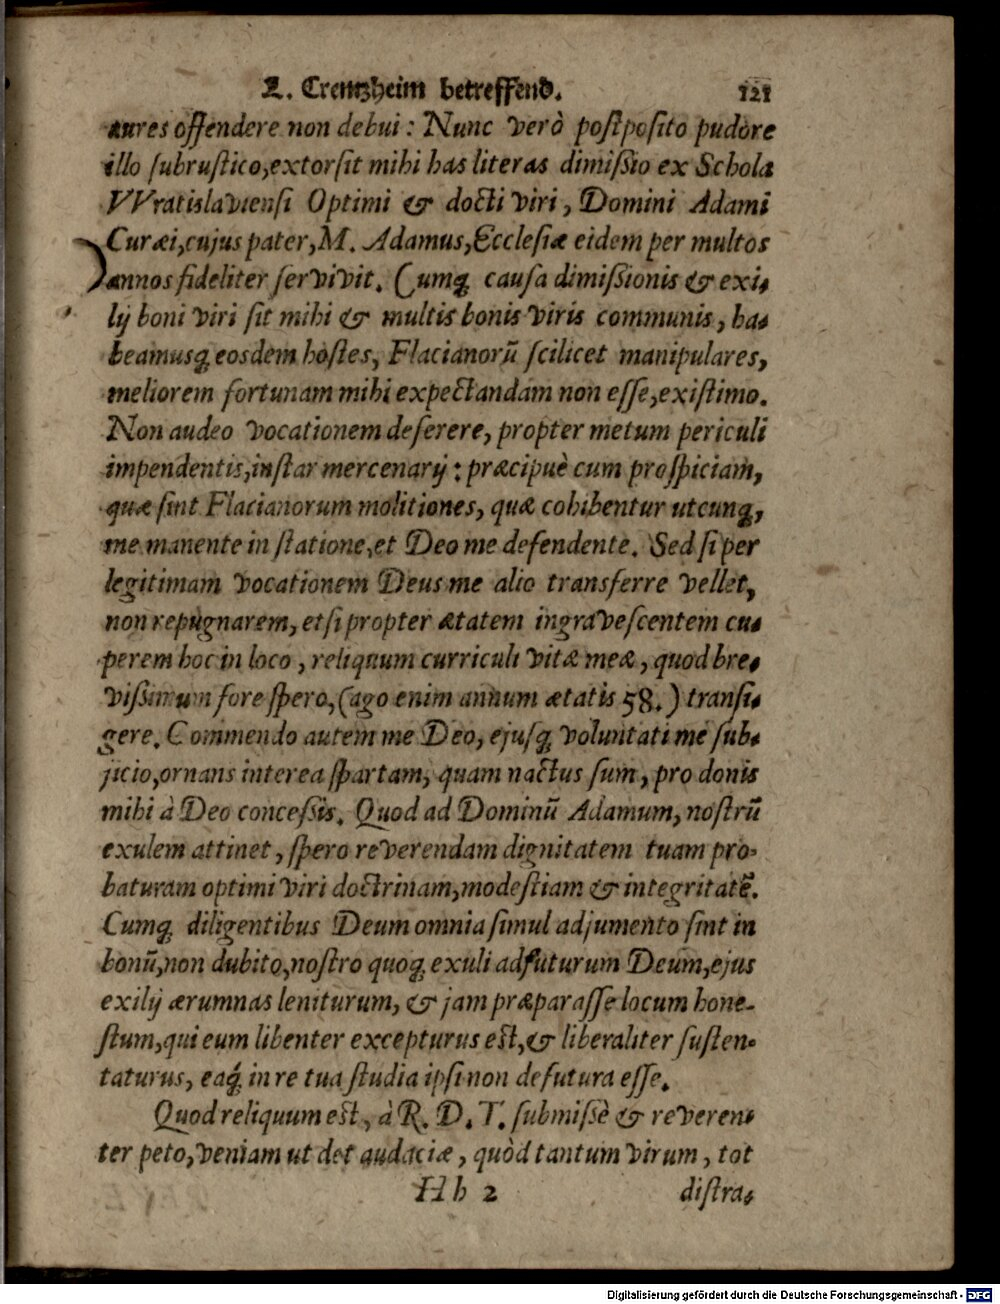 L. Crentzheim betreffend. 121
aures offendere non debui: Nunc verò postposito pudore
illo subrustico, extorsit mihi has literas dimißio ex Schola
VVratislaviensi Optimi & docti viri, Domini Adami
Curæi, cujus pater, M. Adamus, Ecclesiæ eidem per multos
annos fideliter servivit. Cumq́; causa dimißionis & exi-
lij boni viri sit mihi & multis bonis viris communis, ha-
beamusq́; eosdem hostes, Flacianorũ scilicet manipulares,
meliorem fortunam mihi expectandam non esse, existimo.
Non audeo vocationem deserere, propter metum periculi
impendentis, instar mercenarij: præcipuè cum prospiciam,
quæ sint Flacianorum molitiones, quæ cohibentur utcunq́;,
me manente in statione, et Deo me defendente. Sed si per
legitimam vocationem Deus me alio transferre vellet,
non repugnarem, etsi propter ætatem ingravescentem cu-
perem hoc in loco, reliquum curriculi vitæ meæ, quod bre-
vißimum fore spero, (ago enim annum ætatis 58.) transi-
gere. Commendo autem me Deo, ejusq́; voluntati me sub-
jicio, ornans interea spartam, quam nactus sum, pro donis
mihi à Deo conceßis. Quod ad Dominũ Adamum, nostrũ
exulem attinet, spero reverendam dignitatem tuam pro-
baturam optimi viri doctrinam, modestiam & integritatẽ.
Cumq́; diligentibus Deum omnia simul adjumento sint in
bonũ, non dubito, nostro quoq́; exuli adfuturum Deum, ejus
exilij ærumnas leniturum, & jam præparasse locum hone-
stum, qui eum libenter excepturus est, & liberaliter susten-
taturus, eaq́; in re tua studia ipsi non defutura esse.
Quod reliquum est, à R. D. T. submissè & reveren-
ter peto, veniam ut det audaciæ, quòd tantum virum, tot
Hh 2 distra-
Digitalisierung gefördert durch die Deutsche Forschungsgemeinschaft - DFG